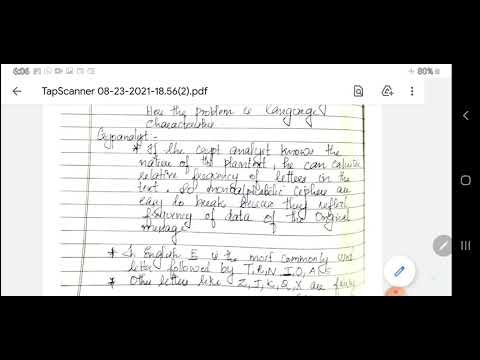 6:06
80%
TapScanner 08-23-2021-18.56(2).pdf
Here the problem is Language
characteristics
Crypanalyst :-
* If the crypt analyst knows the
nature of the plaintext, he can
relative frequency of letters in the
text. So monoalphabetic ciphers are
easy to break because they reflect
frequency of data of the original
message
* In English E is the most commonly used
letter followed by T, R, N, I, O, A,
* Other letters like Z, J, K, Q, X are